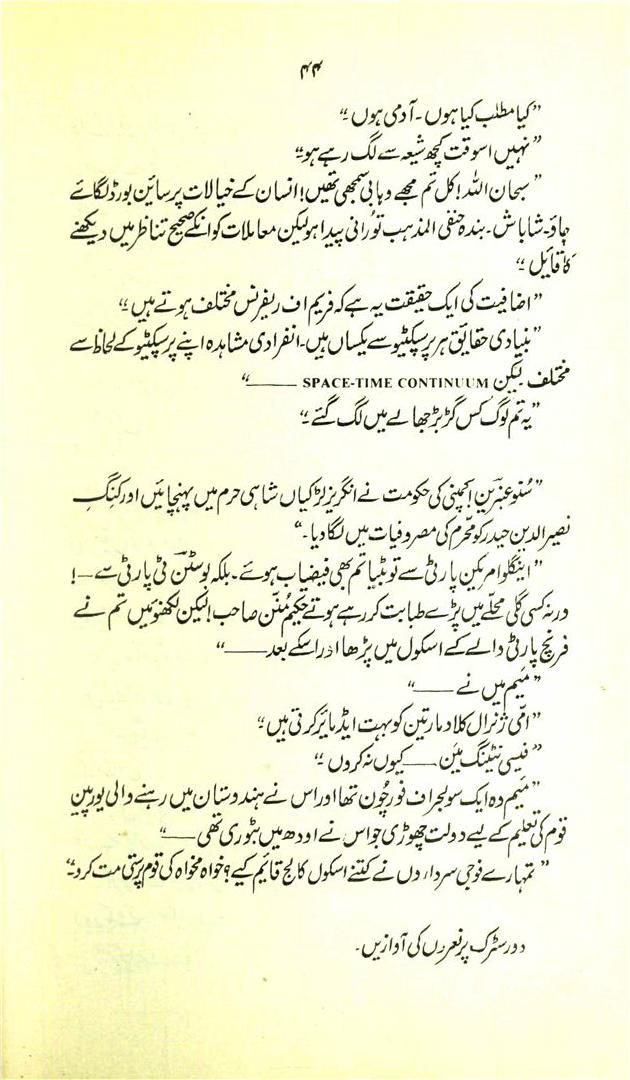 ۴۴
”کیا مطلب کیا ہوں۔ آدمی ہوں۔“
”نہیں اسوقت کچھ شیعہ سے لگ رہے ہو“
”سبحان اللہ! کل تم مجھے وہابی سمجھی تھیں! انسان کے خیالات پر سائین بورڈ لگائے
جاؤ۔ شاباش۔ بندہ حنفی المذہب تورانی پیدا ہو لیکن معاملات کو انکے صحیح تناظر میں دیکھنے
کا قائیل۔“
”اضافیت کی ایک حقیقت یہ ہے کہ فریم اف ریفرنس مختلف ہوتے ہیں۔“
”بنیادی حقایق ہر پرسپکٹیو سے یکساں ہیں۔ انفرادی مشاہدہ اپنے پرسپکٹیو کے لحاظ سے
مختلف۔ لیکن SPACE-TIME CONTINUUM ——“
”یہ تم لوگ کس گڑبڑ جھالے میں لگ گئے۔“
”سُنو عنبرین! کمپنی کی حکومت نے انگریز لڑکیاں شاہی حرم میں پہنچائیں اور کنگ
نصیر الدین حیدر کو محّرم کی مصروفیات میں لگا دیا۔“
”اینگلو امریکن پارٹی سے تو بٹیا تم بھی فیضیاب ہوئے۔ بلکہ بوسٹن ٹی پارٹی سے —!
ورنہ کسی گلی محلّے میں پڑے طبابت کر رہے ہوتے حکیم مُنّن صاحب! لیکن لکھنؤ میں تم نے
فرنچ پارٹی والے کے اسکول میں پڑھا اور اسکے بعد ——“
”میم میں نے ——“
”امّی ژنرال کلاد مارتین کو بہت ایڈمائیر کرتی ہیں“
”فیسی نٹینگ مین —— کیوں نہ کروں۔“
”میم وہ ایک سولجر اف فورچون تھا اور اس نے ہندوستان میں رہنے والی یورپین
قوم کی تعلیم کے لیے دولت چھوڑی جو اس نے اودھ میں بٹوری تھی ——“
”تمہارے فوجی سرداروں نے کتنے اسکول کالج قایم کیے؟ خواہ مخواہ کی قوم پرستی مت کرو“
دور سٹرک پر نعروں کی آوازیں۔